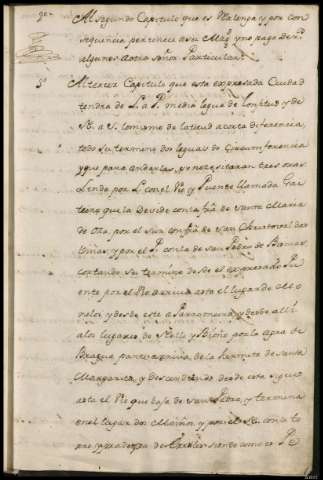 2º Al segundo Capitulo que es Realenga y por con
sequencia perteneze a su Magᵈ y no paga dros
algunos a otro señor Particular
3º Al terzer Capitulo que esta expresada Ciudad
tendra de L. a P. media legua de Lonxitud y de
N. a S. lo mismo de latitud a corta diferencia,
todo su termino dos leguas de Circumferencia
y que para andarlas, se nezesitaran tres oras
Linda por L. con el Rio y Puente llamada Gas
teira que la Devide con la fra. de Santa Maria
de Oza, por el sur con fra. de San Christoval das
Viñas, y por el P. con la de San Pedro de
cortando su termino desde el expresado Pu
ente por el Rio arriva asta el lugar de Mo
nelos, y desde este a Parromeira, y desde allí
a los lugares de Nelle y Bioño por la agra de
Bragua para arriva de la Hermita de Santa
Margarita, y descendiendo desde esta sigue
asta el Rio que baja de San Pedro, y termina
en el lugar dos Moiños, y por el N. con la to
rre y